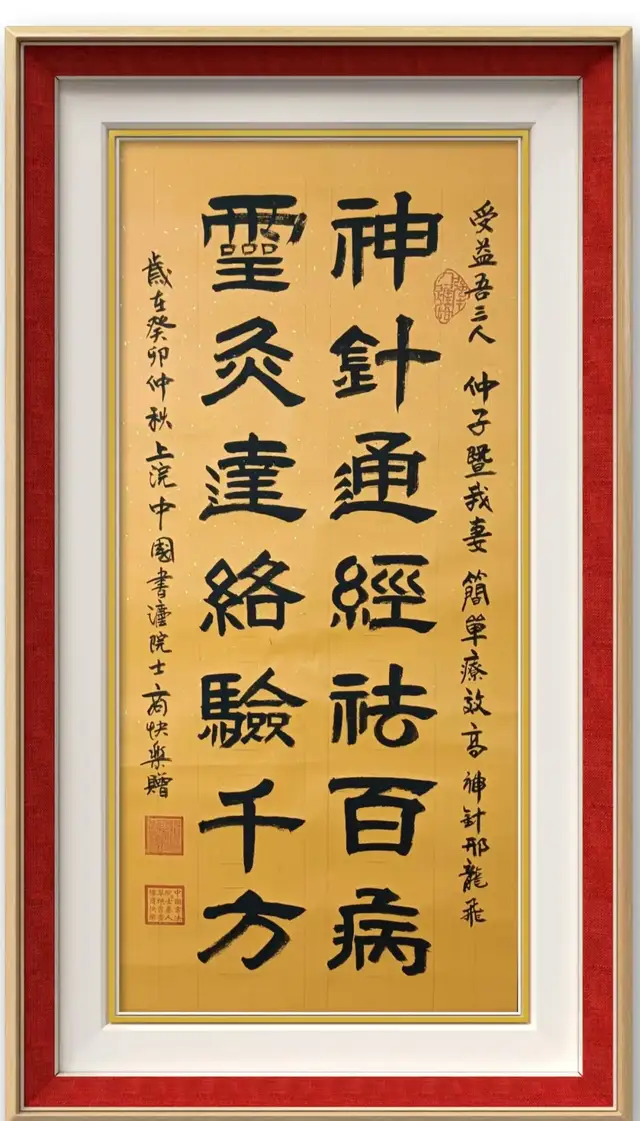 受益吾三人 仲子暨我妻 簡單療效高 神針邢龍飛
神針通經祛百病
靈灸達絡驗千方
歲在癸卯仲秋上浣中國書灋院士商快樂贈